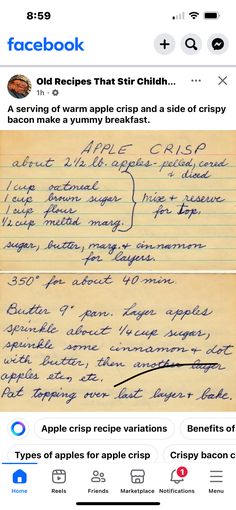 8:59
facebook
Old Recipes That Stir Childh...
1h
A serving of warm apple crisp and a side of crispy
bacon make a yummy breakfast.
APPLE CRISP
about 2 1/2 lb. apples - pelled, cored
& diced
1 cup oatmeal
1 cup brown sugar
1 cup flour
1/2 cup melted marg.
mix & reserve
for top.
sugar, butter, marg. & cinnamon
for layers.
350° for about 40 min.
Butter 9" pan. Layer apples
sprinkle about 1/4 cup sugar,
sprinkle some cinnamon & dot
with butter, then another layer
apples etc, etc.
Pat topping over last layer & bake.
Apple crisp recipe variations
Benefits of
Types of apples for apple crisp
Crispy bacon c
1
Home
Reels
Friends
Marketplace
Notifications
Menu